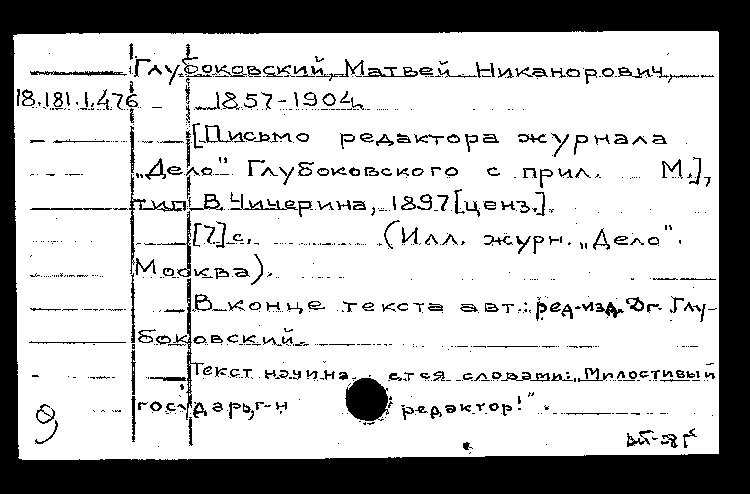 Глубоковский, Матвей Никанорович,
18.181.1.476 1857-1904.
[Письмо редактора журнала
„Дело" Глубоковского с прил. М.],
тип В.Чичерина, 1897[ценз.].
[7]с. (Илл. журн. „Дело".
Москва).
В конце текста авт.: ред-изд. Глу-
боковский.
Текст начинается словами: „Милостивый
государь, г-н редактор!".
9